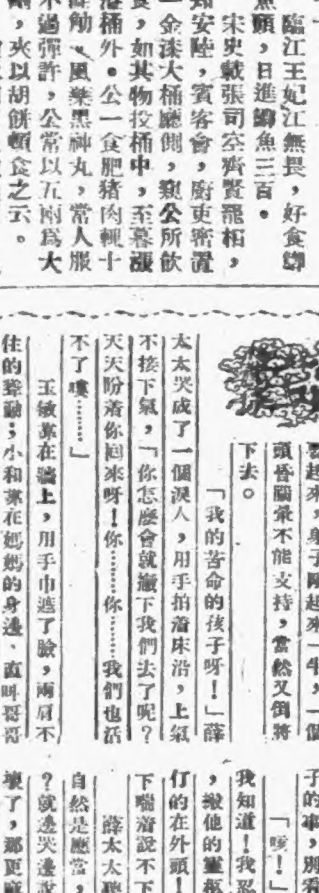 臨江王妃江無畏,好食鯽
魚頭,日進鯽魚三百。
宋史載張司空齊賢罷相,
知安陸,賓客會,廚吏密置
一金漆大桶廳側,窺公所飲
食,如其物投桶中,至暮漲
溢桶外。公一食肥猪肉輒十
餘觔。風藥黑神丸,常人服
不過彈許,公常以五兩爲大
劑,夾以胡餅頓食之云。
起來,身子剛起來一半,一個
頭昏腦暈不能支持,當然又倒將
下去。
「我的苦命的孩子呀!」薛
太太哭成了一個淚人,用手拍着床沿,上氣
不接下氣,「你怎麽會就撇下我們去了呢?
天天盼着你回來呀!你………你………我們也活
不了嘍………」
玉敏靠在牆上,用手巾遮了臉,兩肩不
住的聳動;小和靠在媽媽的身邊、直呌哥哥
子的事,別
「咳!」
我知道!我
,搬他的靈
仃的在外頭!
下喘着說不下
薛太太聽
自然是應當,
?就邊哭邊說
壞了,那更